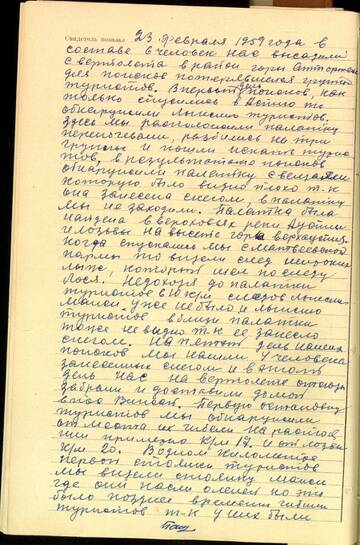 Свидетель показал 23 февраля 1959 года в
составе 6 человек нас высадили
с вертолета в район горы Отортен
для поисков потерявшейся группы
туристов. В первый день поисков, как
только спустились в Ауспию то
обнаружили лыжню туристов.
Здесь мы расположили палатку
переночевали, разбились на три
группы и пошли искать турис
тов, в результате поисков
обнаружили палатку с вещами
которую было видно плохо т.к
она занесена снегом, в палатку
мы не заходили. Палатка была
найдена в верховьях реки Ауспии
и Лозьвы на высоте горы верхаушия.
когда спускались мы с
пармы то видели след широких
лыж, который шел по следу
лося. Недоходя до палатки
туристов 8 км следов лыжни
манси уже не было и лыжню
туристов вблизи палатки
тоже не видно т.к ее занесло
снегом. На пятый день наших
поисков мы нашли 4 человека
занесенных снегом и в этот
день нас на вертолете
забрали и доставили домой
в пос Вижай. Первую остановку
туристов мы обнаружили
от места их гибели на растоя
нии примерно км 17. и от Лозьвы
км 20. В одном километре
первой стоянки туристов
мы видели стоянку манси
где они пасли оленей но это
было позднее времени гибели
туристов т.к у них были